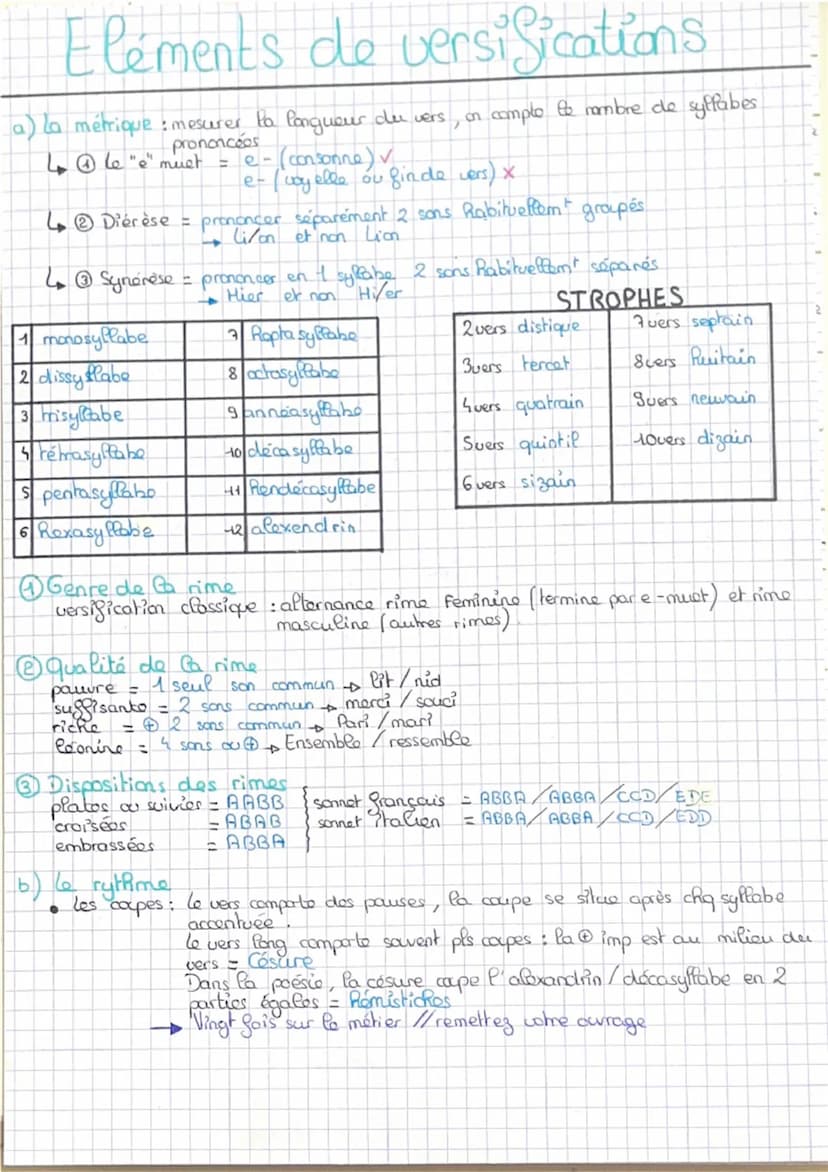 Eléments de versifications
a) La métrique : mesurer la longueur du vers, on compte le nombre de syllabes
prononcées
↳ ① Le "e" muet = e - (consonne) ✓
e - (voyelle ou fin de vers) ✗
↳ ② Diérèse = prononcer séparément 2 sons habituellemt groupés
→ Li/on et non Lion
↳ ③ Synérèse = prononcer en 1 syllabe 2 sons habituellemt séparés
→ Hier et non Hi/er
STROPHES
1 monosyllabe 7 heptasyllabe
2 dissyllabe 8 octosyllabe
3 trisyllabe 9 ennéasyllabe
4 tétrasyllabe 10 décasyllabe
5 pentasyllabe 11 hendécasyllabe
6 hexasyllabe 12 alexendrin
2vers distique 7vers septain
3vers tercet 8vers huitain
4vers quatrain 9vers neuvain
5vers quintil 10vers dizain
6vers sizain
① Genre de la rime
versification classique : alternance rime Feminine (termine par e-muet) et rime
masculine (autres rimes)
② Qualité de la rime
pauvre = 1 seul son commun → lit / nid
suffisante = 2 sons commun → merci / souci
riche = ⊕ 2 sons commun → Pari / mari
léonine = 4 sons ou ⊕ → Ensemble / ressemble
③ Dispositions des rimes
plates ou suivies = AABB sonnet français = ABBA / ABBA / CCD / EDE
croisées = ABAB sonnet italien = ABBA / ABBA / CCD / EDD
embrassées = ABBA
b) Le rythme
• Les coupes : Le vers comporte des pauses, la coupe se situe après chq syllabe
accentuée.
Le vers long comporte souvent pls coupes : la ⊕ imp est au milieu du
vers = Césure
Dans la poésie, la césure coupe l'alexandrin / décasyllabe en 2
parties égales = hémistiches
→ Vingt fois sur le métier // remettez votre ouvrage